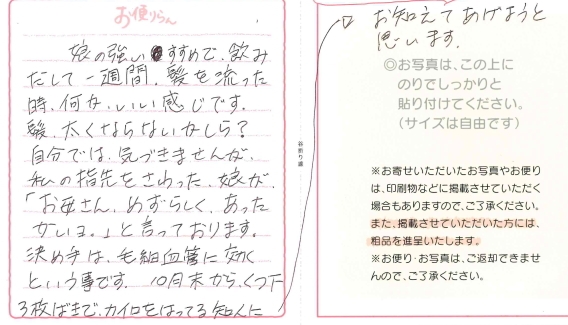 お便りらん
娘の強いすすめで、飲み
だして一週間、髪を洗った
時、何か、いい感じです。
髪、太くならないかしら?
自分では、気づきませんが、
私の指先をさわった、娘が、
「お母さん、めずらしく、あった
かいョ。」と言っております。
決め手は、毛細血管に効く
という事です。10月末から、くつ下
3枚ばきで、カイロをはってる知人に
お知えてあげようと
思います。
谷折り線
◎お写真は、この上に
のりでしっかりと
貼り付けてください。
(サイズは自由です)
※お寄せいただいたお写真やお便り
は、印刷物などに掲載させていただく
場合もありますので、ご了承ください。
また、掲載させていただいた方には、
粗品を進呈いたします。
※お便り・お写真は、ご返却できませ
んので、ご了承ください。